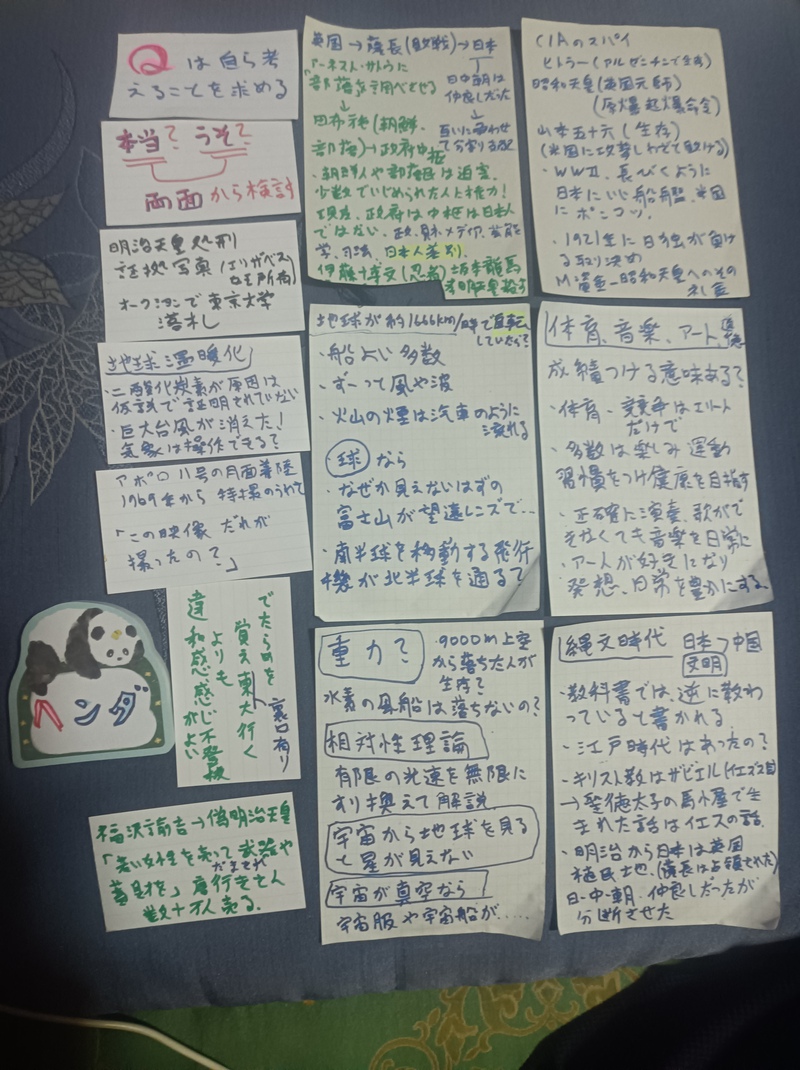 Qは自ら考
えることを求める
本当? うそ?
両面から検討
明治天皇処刑
証拠写真(エリザベス
女王所有)
オークションで東京大学
落札
地球温暖化
・二酸化炭素が原因は
仮説で証明されていない
・巨大台風が消えた!
気象は操作できる?
アポロ11号の月面着陸
1969年から特撮のうわさ
「この映像だれが
撮ったの?」
でたらめを
覚え東大行く
よりも
違和感感じ不登校
がよい
裏口有り
ヘンダ
福沢諭吉→偽明治天皇
「若い女性を売って武器や
蓄財を」唐行きさん
だまされ
数十万人売る.
英国→薩長(敗戦)→日本
アーネスト・サトウに
部落を調べさせる
日中朝は
仲良しだった
互いに争わせ
て分割する
田布施(朝鮮.
部落)→政府中枢
・朝鮮人や部落民は迫害.
少数でいじめられた人と権力!
現在、政府は中枢は日本人
ではない. 政、財、メディア、芸能
学、司法、日本人差別.
伊藤博文(忍者)坂本龍馬
孝明天皇殺す
地球が約1666km/時で自転
していたら?
・船よい多数
・ずーって風や波
・火山の煙は汽車のように
流れる
球なら
・なぜか見えないはずの
富士山が望遠レンズで…
・南半球を移動する飛行
機が北半球を通るて
重力?
・9000m上空
から落ちた人が
生存?
水素の風船は落ちないの?
相対性理論
有限の光速を無限に
すり換えて解説
宇宙から地球を見る
と星が見えない
宇宙が真空なら
宇宙服や宇宙船が……
CIAのスパイ
ヒトラー(アルゼンチンで生存)
昭和天皇(英国元帥)
(原爆起爆命令)
山本五十六(生存)
(米国に攻撃しわざと敗ける)
・WWⅡ、長びくように
日本にいい船艦、米国
にポンコツ.
・1921年に日独が負け
る取り決め
M資金-昭和天皇へのその
礼金
体育、音楽、アート、道徳
成績つける意味ある?
・体育・競争はエリート
だけで
・多数は楽しみ運動
習慣をつけ健康を目指す
・正確に演奏、歌がで
きなくても音楽を日常に
・アートが好きになり
発想、日常を豊かにする
縄文時代 日本→中国
文明
・教科書では、逆に教わ
っていると書かれる
・江戸時代はあったの?
・キリスト教はザビエル(イエズス会)
→聖徳太子の馬小屋で生
まれた話はイエスの話.
・明治から日本は英国
植民地.(薩長は占領された)
日-中-朝. 仲良しだったが
分断させた